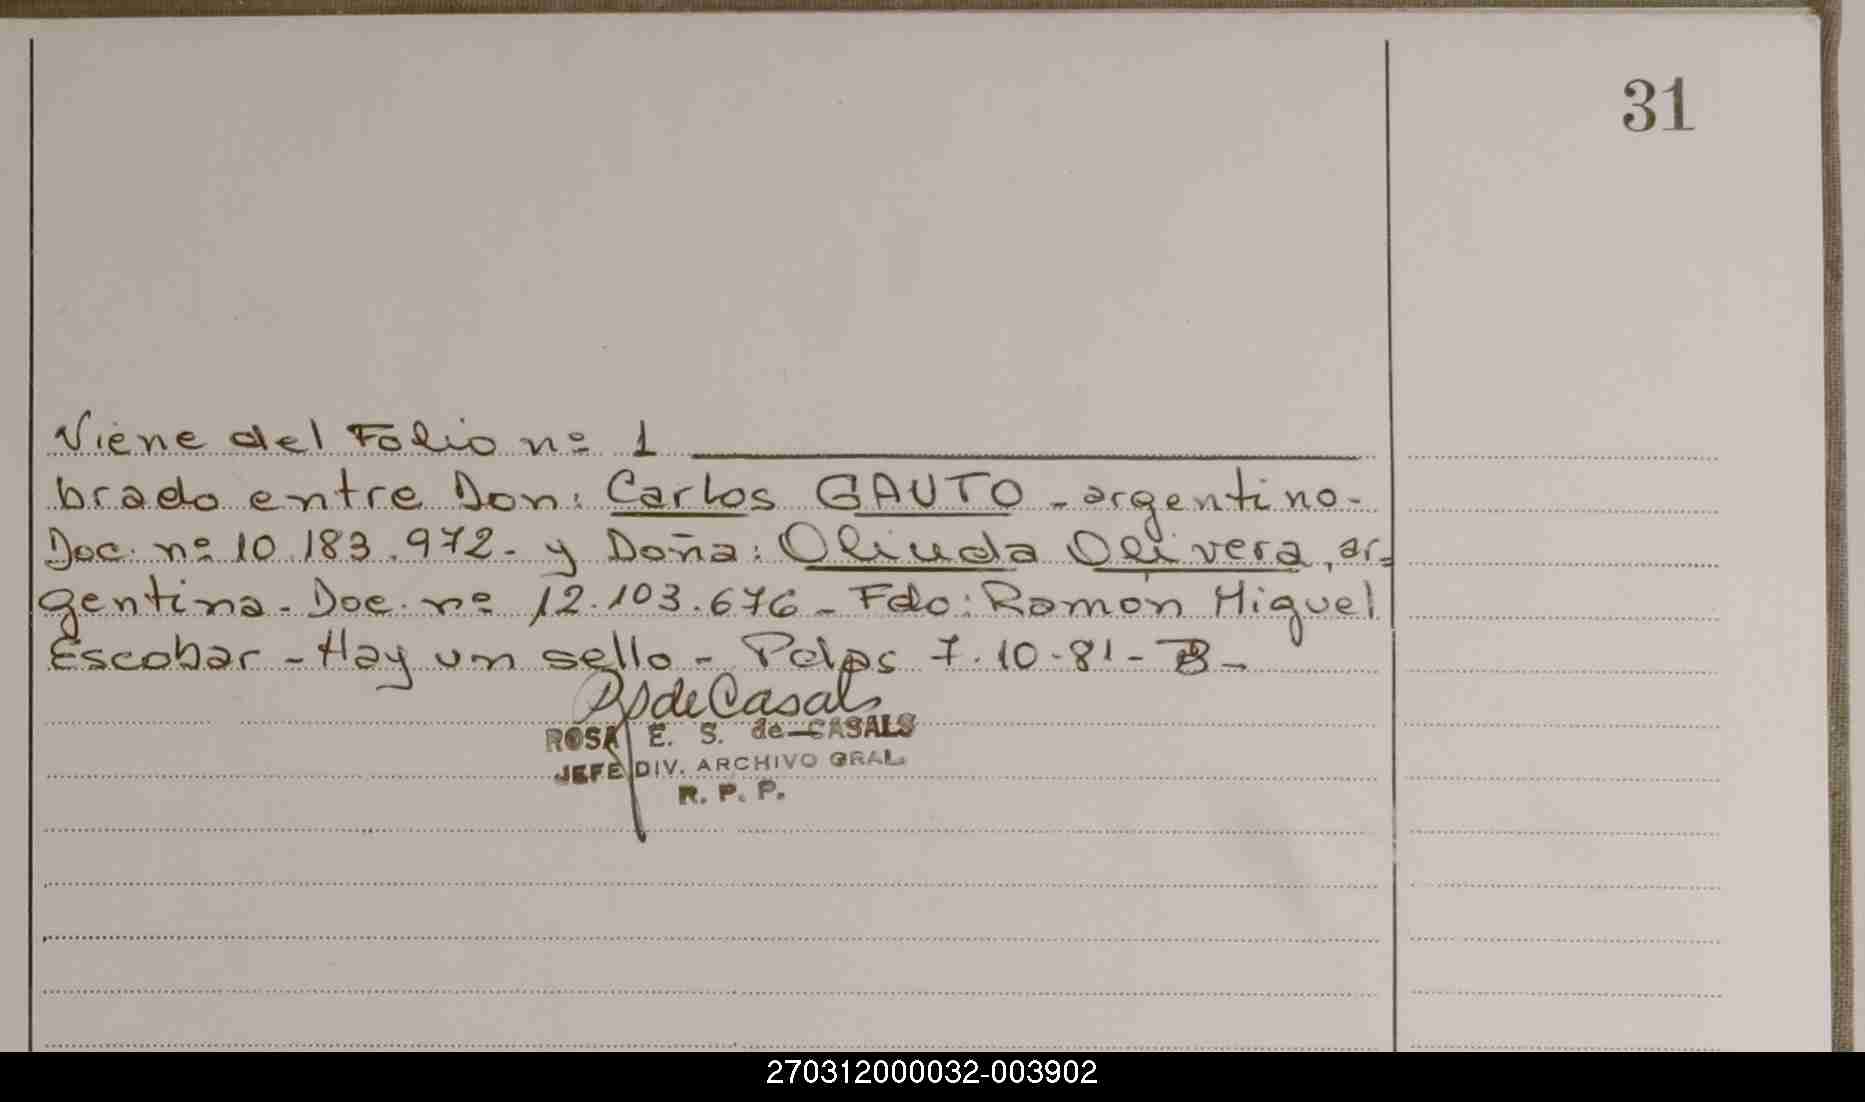 31
Viene del Folio nº 1
brado entre Don: Carlos GAUTO - argentino-
Doc. nº 10.183.972. y Doña: Olinda Olivera, ar=
gentina. Doc. nº 12.103.676 - Fdo: Ramón Miguel
Escobar - Hay un sello - Pdas 7.10.81 -
de Casals
ROSA E. S. de CASALS
JEFE DIV. ARCHIVO GRAL.
R. P. P.
270312000032-003902